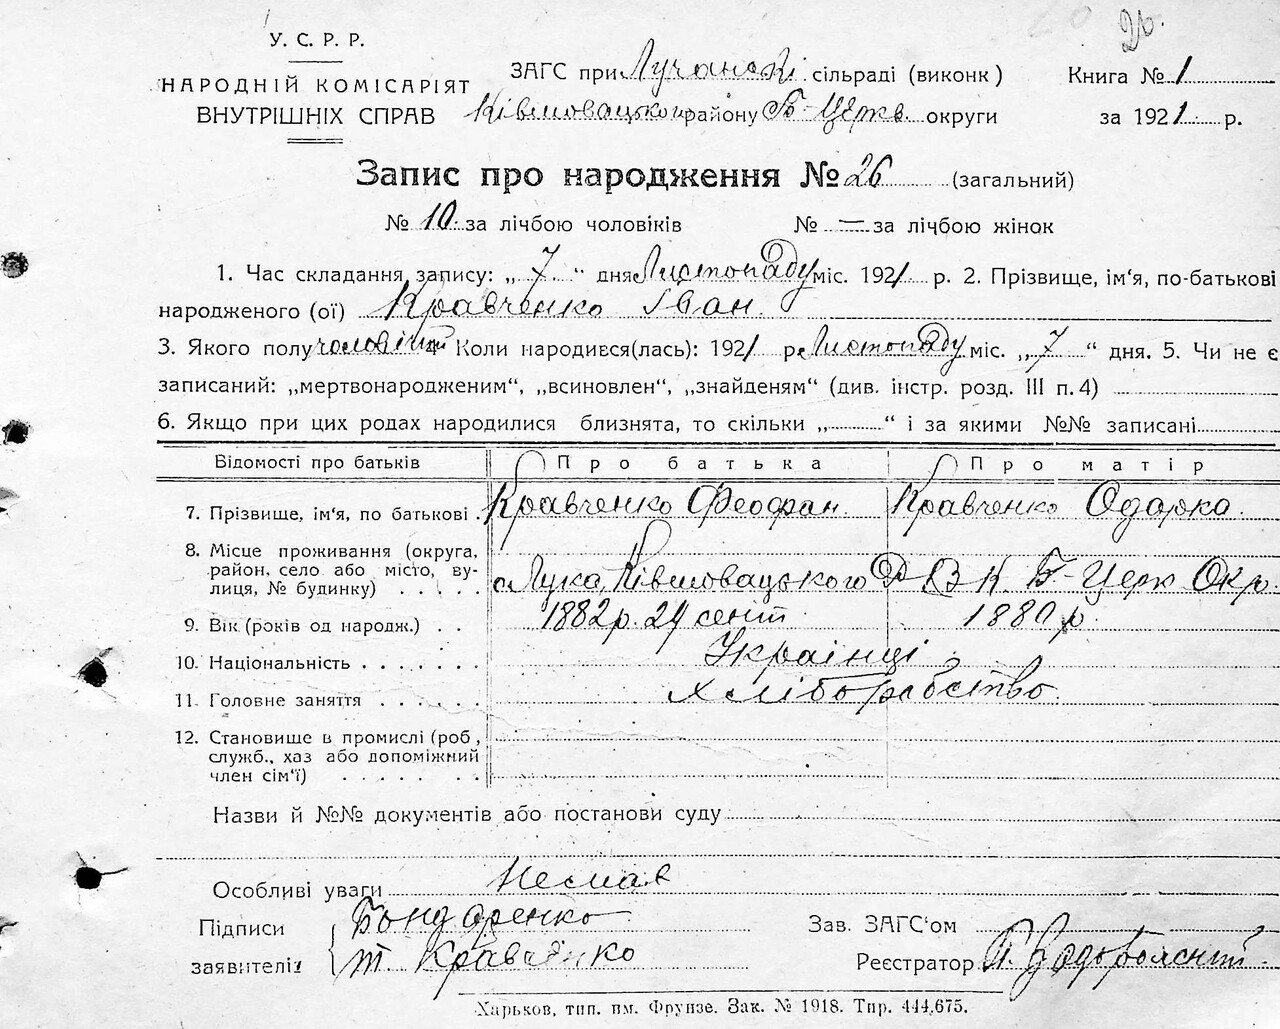 26.
У. С. Р. Р.
НАРОДНІЙ КОМІСАРІЯТ
ВНУТРІШНІХ СПРАВ
ЗАГС при Лучанскі сільраді (виконк)
Ківшовацького району Б-Церкв. округи
Книга № 1
за 1921 р.
Запис про народження № 26 (загальний)
№ 10 за лічбою чоловіків № = за лічбою жінок
1. Час складання запису: „ 7 “ дня Листопаду міс. 1921 р. 2. Прізвище, ім‘я, по-батькові
народженого (ої) Кравченко Іван.
3. Якого полу чоловічий 4 Коли народився(лась): 1921 р Листопаду міс. „7 “ дня. 5. Чи не є
записаний: „мертвонародженим“, „всиновлен“, „знайденям“ (див. інстр. розд. III п. 4)
6. Якщо при цих родах народилися близнята, то скільки „ “ і за якими №№ записані
Відомості про батьків Про батька Про матір
7. Прізвище, ім‘я, по батькові Кравченко Феофан. Кравченко Одарка.
8. Місце проживання (округа,
район, село або місто, ву-
лиця, № будинку) с Лука, Ківшовацького Б-Церк Окр.
9. Вік (років од народж.) 1882 р. 24 сент 1880 р.
10. Національність Українці
11. Головне заняття хліборобство.
12. Становище в промислі (роб,
служб., хаз або допоміжний
член сім‘ї)
Назви й №№ документів або постанови суду
Особливі уваги Немає
Підписи Бондаренко
заявителів т. Кравченко
Зав. ЗАГС‘ом
Реєстратор
Харьков, тип. им. Фрунзе. Зак. № 1918. Тир. 444.675.